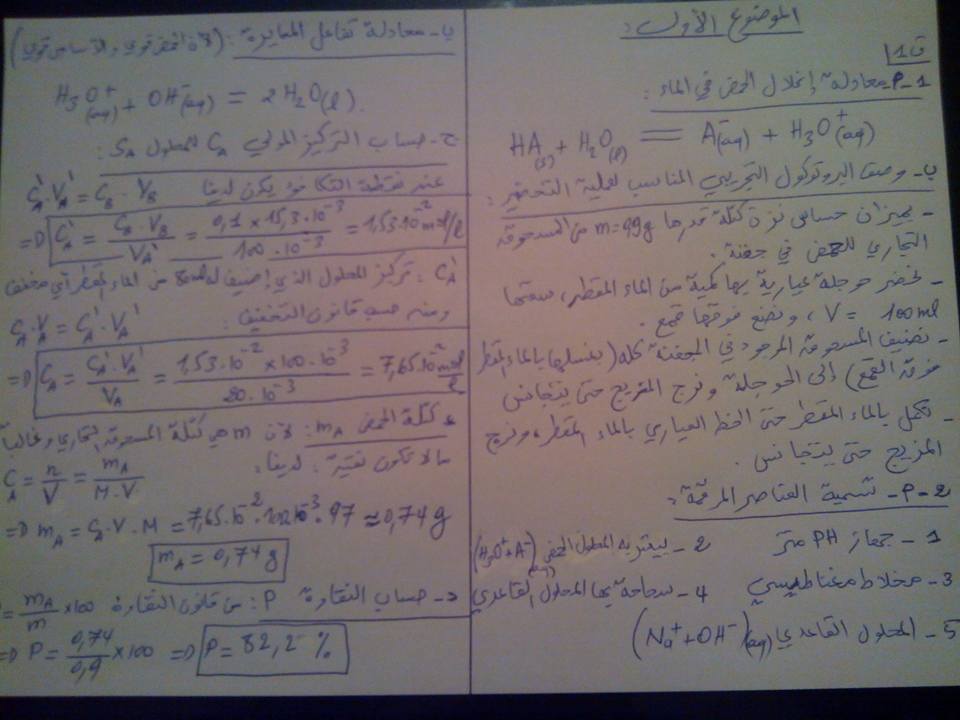 الموضوع الأول:
ت1
1-P- معادلة إنحلال الحمض في الماء:
HA(s) + H2O(l) = A-(aq) + H3O+(aq)
ب- وصف البروتوكول التجريبي المناسب لعملية التحضير:
- بميزان حساس نزن كتلة قدرها m=99g من المسحوق
التجاري للحمض في جفنة.
- نحضر حوجلة عيارية بها كمية من الماء المقطر، سعتها
V = 100ml، ونضع فوقها قمع.
- نضيف المسحوق الموجود في الجفنة كله (بغسلها بالماء المقطر
فوق القمع) إلى الحوجلة ونرج المزيج حتى يتجانس
- نكمل بالماء المقطر حتى الخط العياري بالماء المقطر، ونرج
المزيج حتى يتجانس.
2-P- تسمية العناصر المرقمة:
1- جهاز PH متر 2- بيشر به المحلول الحمضي (H3O+ + A-)(aq)
3- مخلاط مغناطيسي 4- سحاحة بها المحلول القاعدي
5- المحلول القاعدي (Na+ + OH-)(aq)
ب- معادلة تفاعل المعايرة: (لأن الحمض قوي والأساس قوي)
H3O+(aq) + OH-(aq) = 2H2O(l).
ج- حساب التركيز المولي CA للمحلول SA:
عند نقطة التكافؤ يكون لدينا C'A.V'A = CB.VB
=D C'A = CB.VB / V'A = 0,1 × 15,3.10^-3 / 100.10^-3 = 1,53.10^-2 mol/l
C'A: تركيز المحلول الذي أضيف له 80ml من الماء المقطر أي مخفف
ومنه حسب قانون التخفيف: CA.VA = C'A.V'A
=D CA = C'A.V'A / VA = 1,53.10^-2 × 100.10^-3 / 20.10^-3 = 7,65.10^-2 mol/l
* كتلة الحمض mA: لأن m هي كتلة المسحوق التجاري وغالبا
ما لا تكون نقية: لدينا: CA = n/V = mA / M.V
=D mA = CA.V.M = 7,65.10^-2.100.10^-3.97 ≈ 0,74 g
mA = 0,74 g
د- حساب النقاوة P: من قانون النقاوة P = mA/m × 100
=D P = 0,74 / 0,9 × 100 =D P = 82,2 %